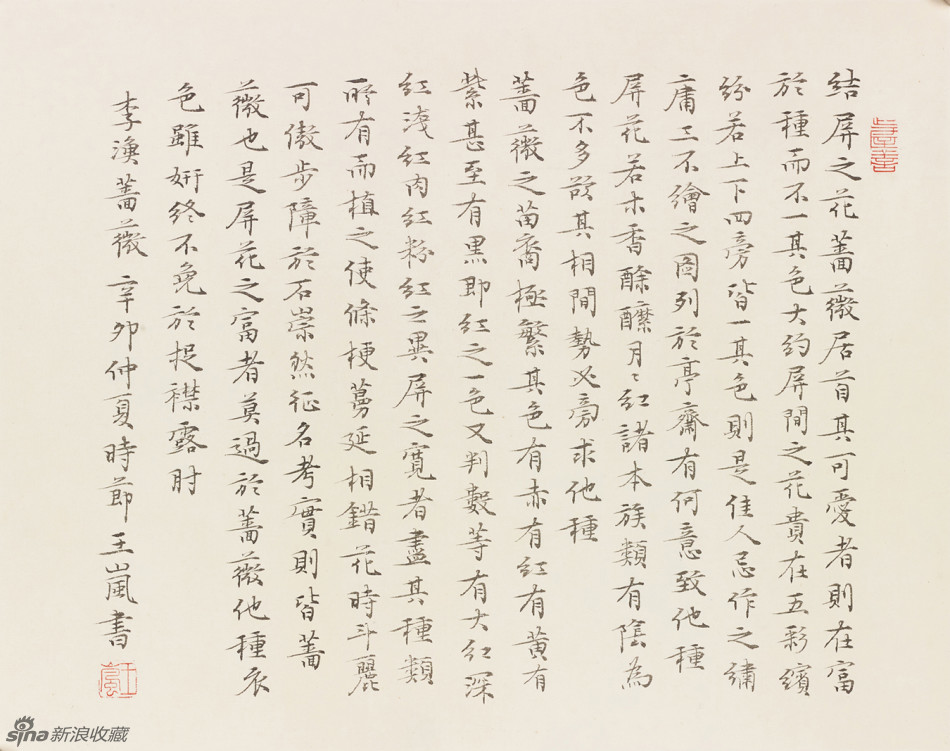 結屏之花薔薇居首其可愛者則在富
於種而不一其色大約屏間之花貴在五彩繽
紛若上下四旁皆一其色則是佳人忌作之繡
庸工不繪之圖列於亭齋有何意致他種
屏花若木香酴醾月〻紅諸本族類有陰為
色不多欲其相間勢必旁求他種
薔薇之苗裔極繁其色有赤有紅有黃有
紫甚至有黑即紅之一色又判數等有大紅深
紅淺紅肉紅粉紅之異屏之寬者盡其種類
所有而植之使條梗蔓延相錯花時斗麗
可傲步障於石崇然征名考實則皆薔
薇也是屏花之富者莫過於薔薇他種衣
色雖妍終不免於捉襟露肘
李漁薔薇 辛卯仲夏時節 王嵐書
王嵐
sina新浪收藏